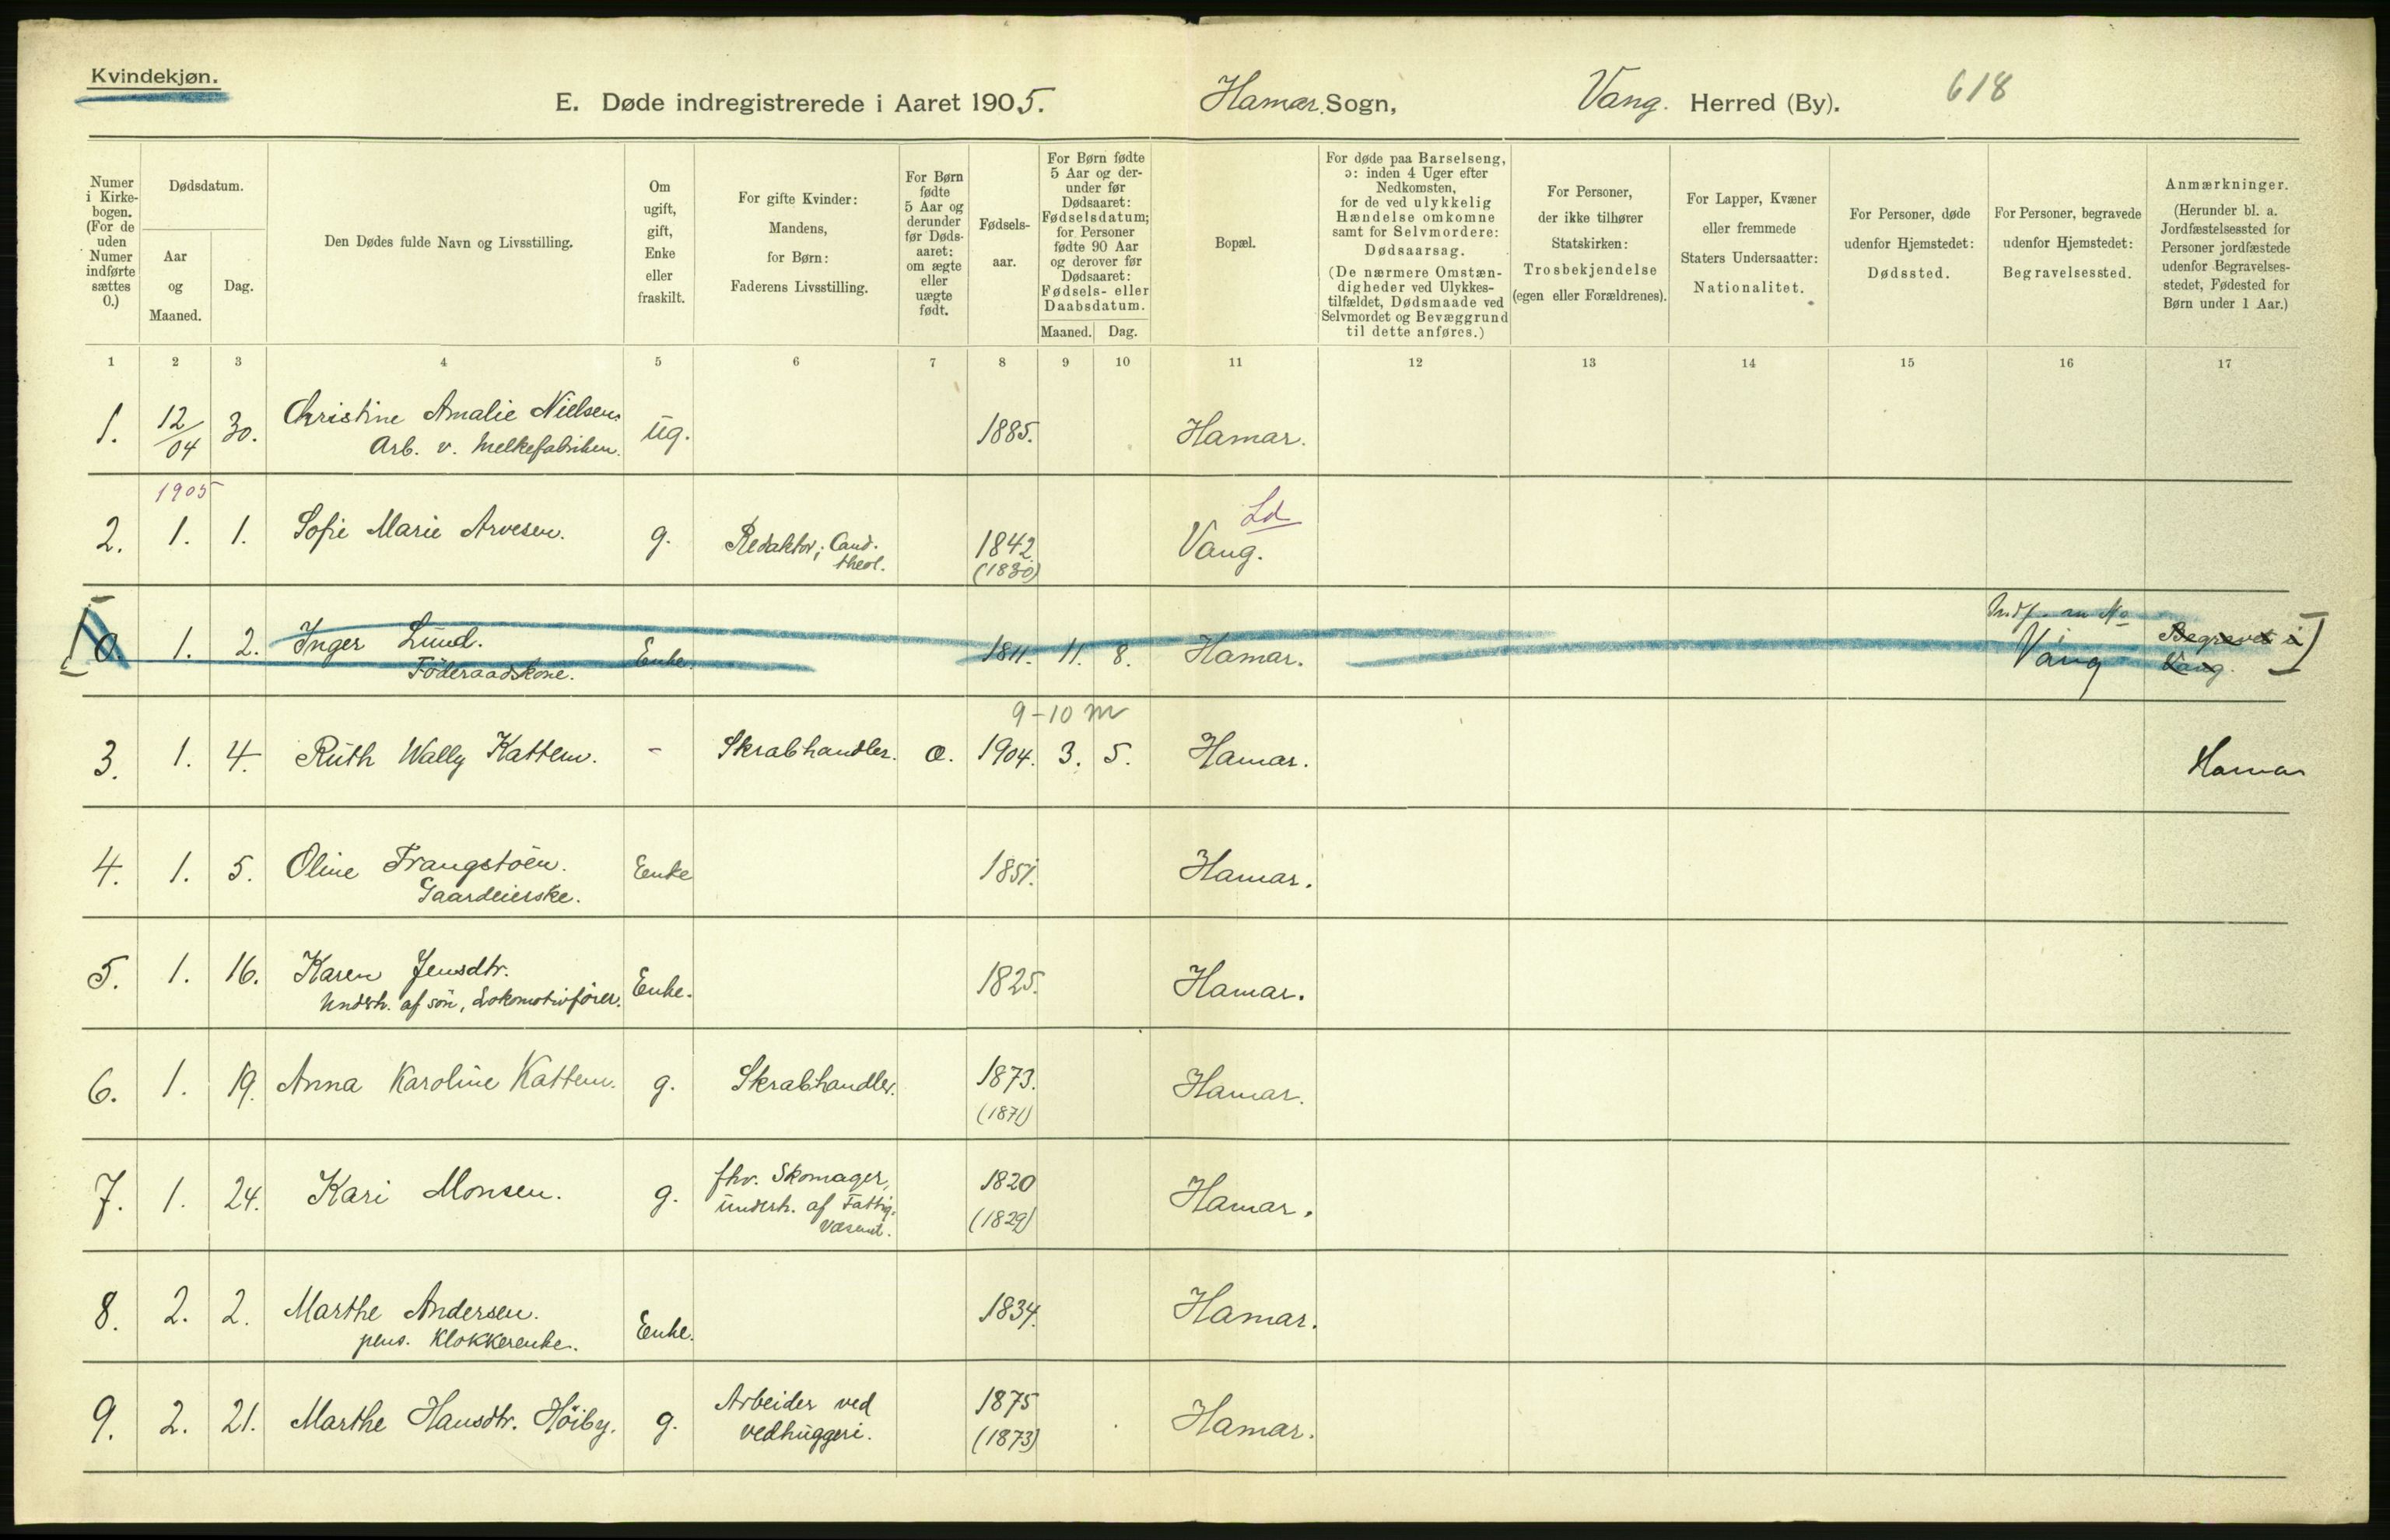 Kvindekjøn.
E. Døde indregistrerede i Aaret 1905. Hamar Sogn, Vang. Herred (By). 618
Numer i Kirke- bogen. (For de uden Numer indførte sættes 0.)
Dødsdatum.
Aar og Maaned.
Dag.
Den Dødes fulde Navn og Livsstilling.
Om ugift, gift, Enke eller fraskilt.
For gifte Kvinder: Mandens, for Børn: Faderens Livsstilling.
For Børn fødte 5 Aar og derunder før Døds- aaret: om ægte eller uægte født.
Fødsels- aar.
For Børn fødte 5 Aar og der- under før Dødsaaret: Fødselsdatum; for Personer fødte 90 Aar og derover før Dødsaaret: Fødsels- eller Daabsdatum.
Maaned. Dag.
Bopæl.
For døde paa Barselseng, ɔ: inden 4 Uger efter Nedkomsten, for de ved ulykkelig Hændelse omkomne samt for Selvmordere: Dødsaarsag. (De nærmere Omstæn- digheder ved Ulykkes- tilfældet, Dødsmaade ved Selvmordet og Bevæggrund til dette anføres.)
For Personer, der ikke tilhører Statskirken: Trosbekjendelse (egen eller Forældrenes).
For Lapper, Kvæner eller fremmede Staters Undersaatter: Nationalitet.
For Personer, døde udenfor Hjemstedet: Dødssted.
For Personer, begravede udenfor Hjemstedet: Begravelsessted.
Anmærkninger. (Herunder bl. a. Jordfæstelsessted for Personer jordfæstede udenfor Begravelses- stedet, Fødested for Børn under 1 Aar.)
1 2 3 4 5 6 7 8 9 10 11 12 13 14 15 16 17
1. 12/04 30. Christine Amalie Nielsen. ug. 1885. Hamar.
Arb. v. Melkefabriken.
1905 Ld
2. 1. 1. Sofie Marie Arvesen. g. Redaktør; Cand. 1842 Vang.
theol. (1830)
[0. 1. 2. Inger Lund. Enke. 1811. 11. 8. Hamar. Vang Begravet i]
Føderaadskone. Vang.
9-10 m
3. 1. 4. Ruth Wally Kattem. - Skrabhandler. æ. 1904. 3. 5. Hamar. Hamar
4. 1. 5. Oline Frangstöen. Enke 1851. Hamar.
Gaardeierske.
5. 1. 16. Karen Jensdtr. Enke. 1825. Hamar.
Underh. af søn, Lokomotivfører.
6. 1. 19. Anna Karoline Kattem. g. Skrabhandler. 1873. Hamar.
(1871)
7. 1. 24. Kari Monsen. g. fhv. Skomager, 1820 Hamar.
underh. af Fattig- (1829)
væsenet.
8. 2. 2. Marthe Andersen. Enke. 1834. Hamar.
pens. Klokkerenke.
9. 2. 21. Marthe Hansdtr. Höiby. g. Arbeider ved 1875 Hamar.
vedhuggeri. (1873)